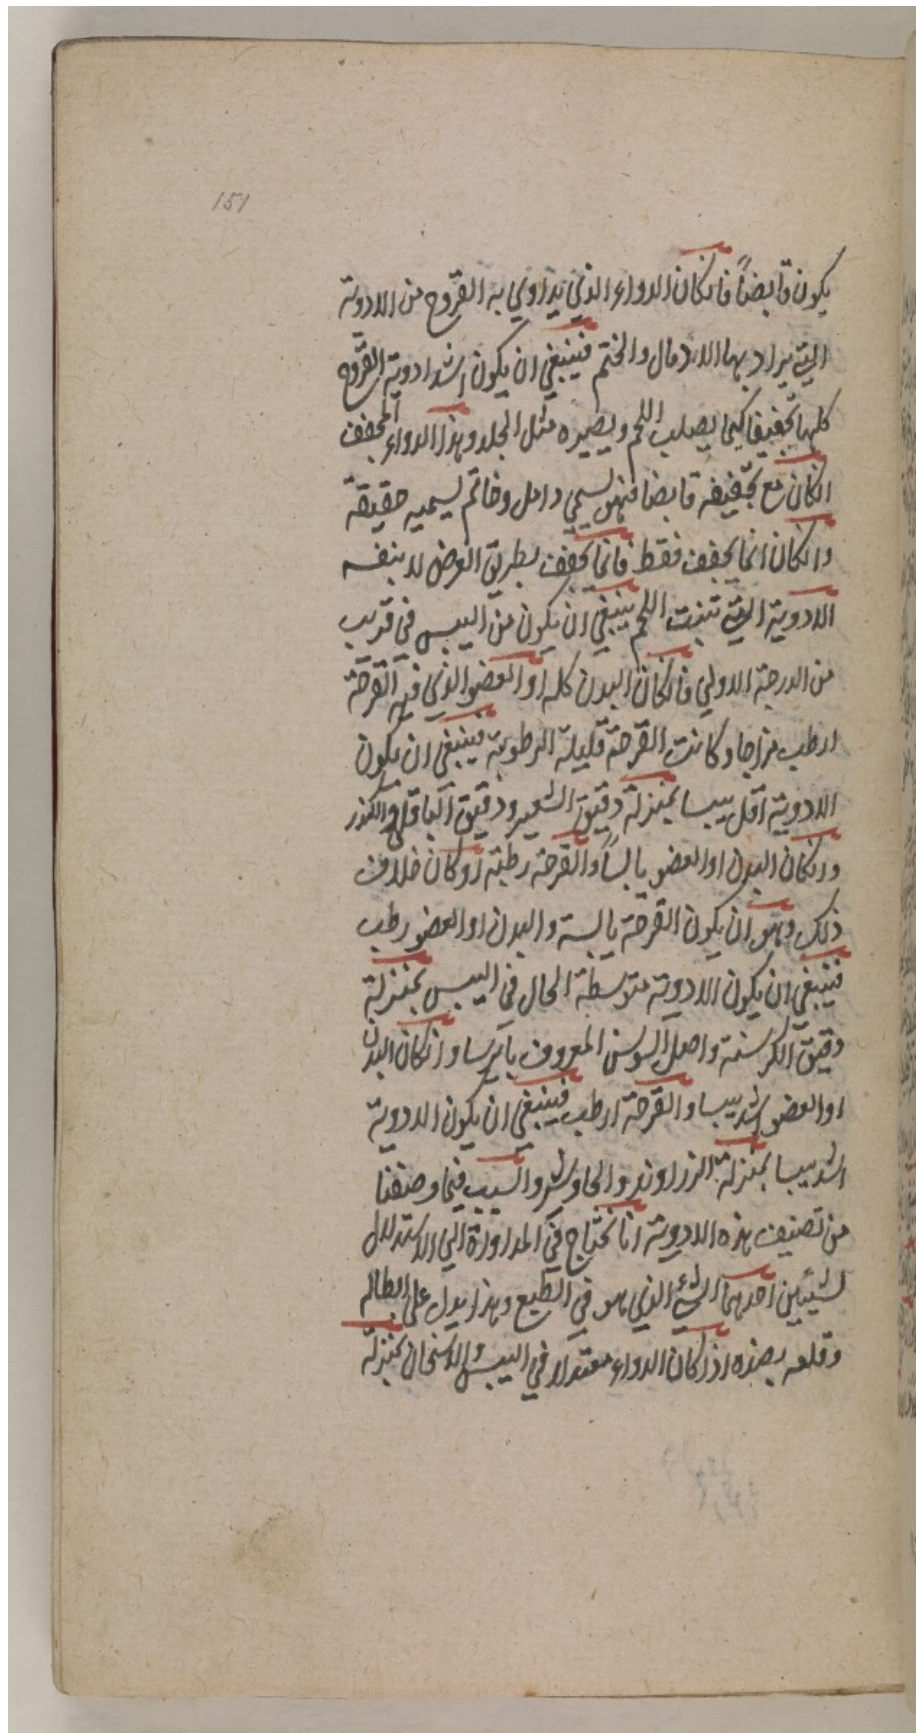 151
يكون قابضاً فانكان الدواء الذي يداوي به القروح من الادوية
التي يراد بها الاندمال والختم فينبغي ان يكون اشد ادوية القروح
كلها تجفيفا كيما يصلب اللحم ويصيره مثل الجلد وهذا الدواء المجفف
انكان مع تجفيفه قابضا فهو يسمي دامل وخاتم تسميه حقيقة
وانكان انما يجفف فقط فانما يجفف بطريق العرض لا بنفسه
الادوية التي تنبت اللحم ينبغي ان يكون من اليبس في قريب
من الدرجة الاولي فانكان البدن كله او العضو الذي فيه القرحة
ارطب مزاجا وكانت القرحة قليلة الرطوبة فينبغي ان يكون
الادوية اقل يبسا بمنزلة دقيق الشعير ودقيق الباقلي والكندر
وانكان البدن او العضو يابساً والقرحة رطبة او كان خلاف
ذلك وهو ان يكون القرحة يابسة والبدن او العضو رطب
فينبغي ان يكون الادوية متوسطة الحال في اليبس بمنزلة
دقيق الكرسنة واصل السوسن المعروف بايرسا وانكان البدن
او العضو اشد يبسا والقرحة ارطب فينبغي ان يكون الادوية
اشد يبسا بمنزلة الزراوند والجاوشير والسبب فيما وصفنا
من تصنيف هذه الادوية انا نحتاج في المداواة الي الاستدلال
لشيئين احدهما الشئ الذي هو في الطبع وهذا يدل علي
وقلعه بضده اذا كان الدواء معتدلا في اليبس والاسخان بمنزلة